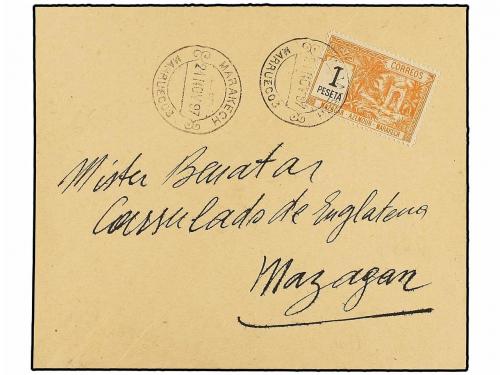 MARRAKECH
21 NOV 97
MARRUECOS
MARRUECOS
CORREOS
1
PESETA
MAZAGAN AZEMOUR MARAKECH
Mister Benatar
Consulado de Englaterra
Mazagan